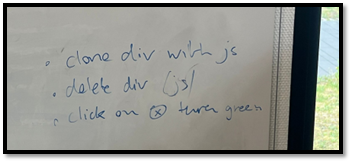 . clone div with js
. delete div (js)
. click on ⓧ turn green